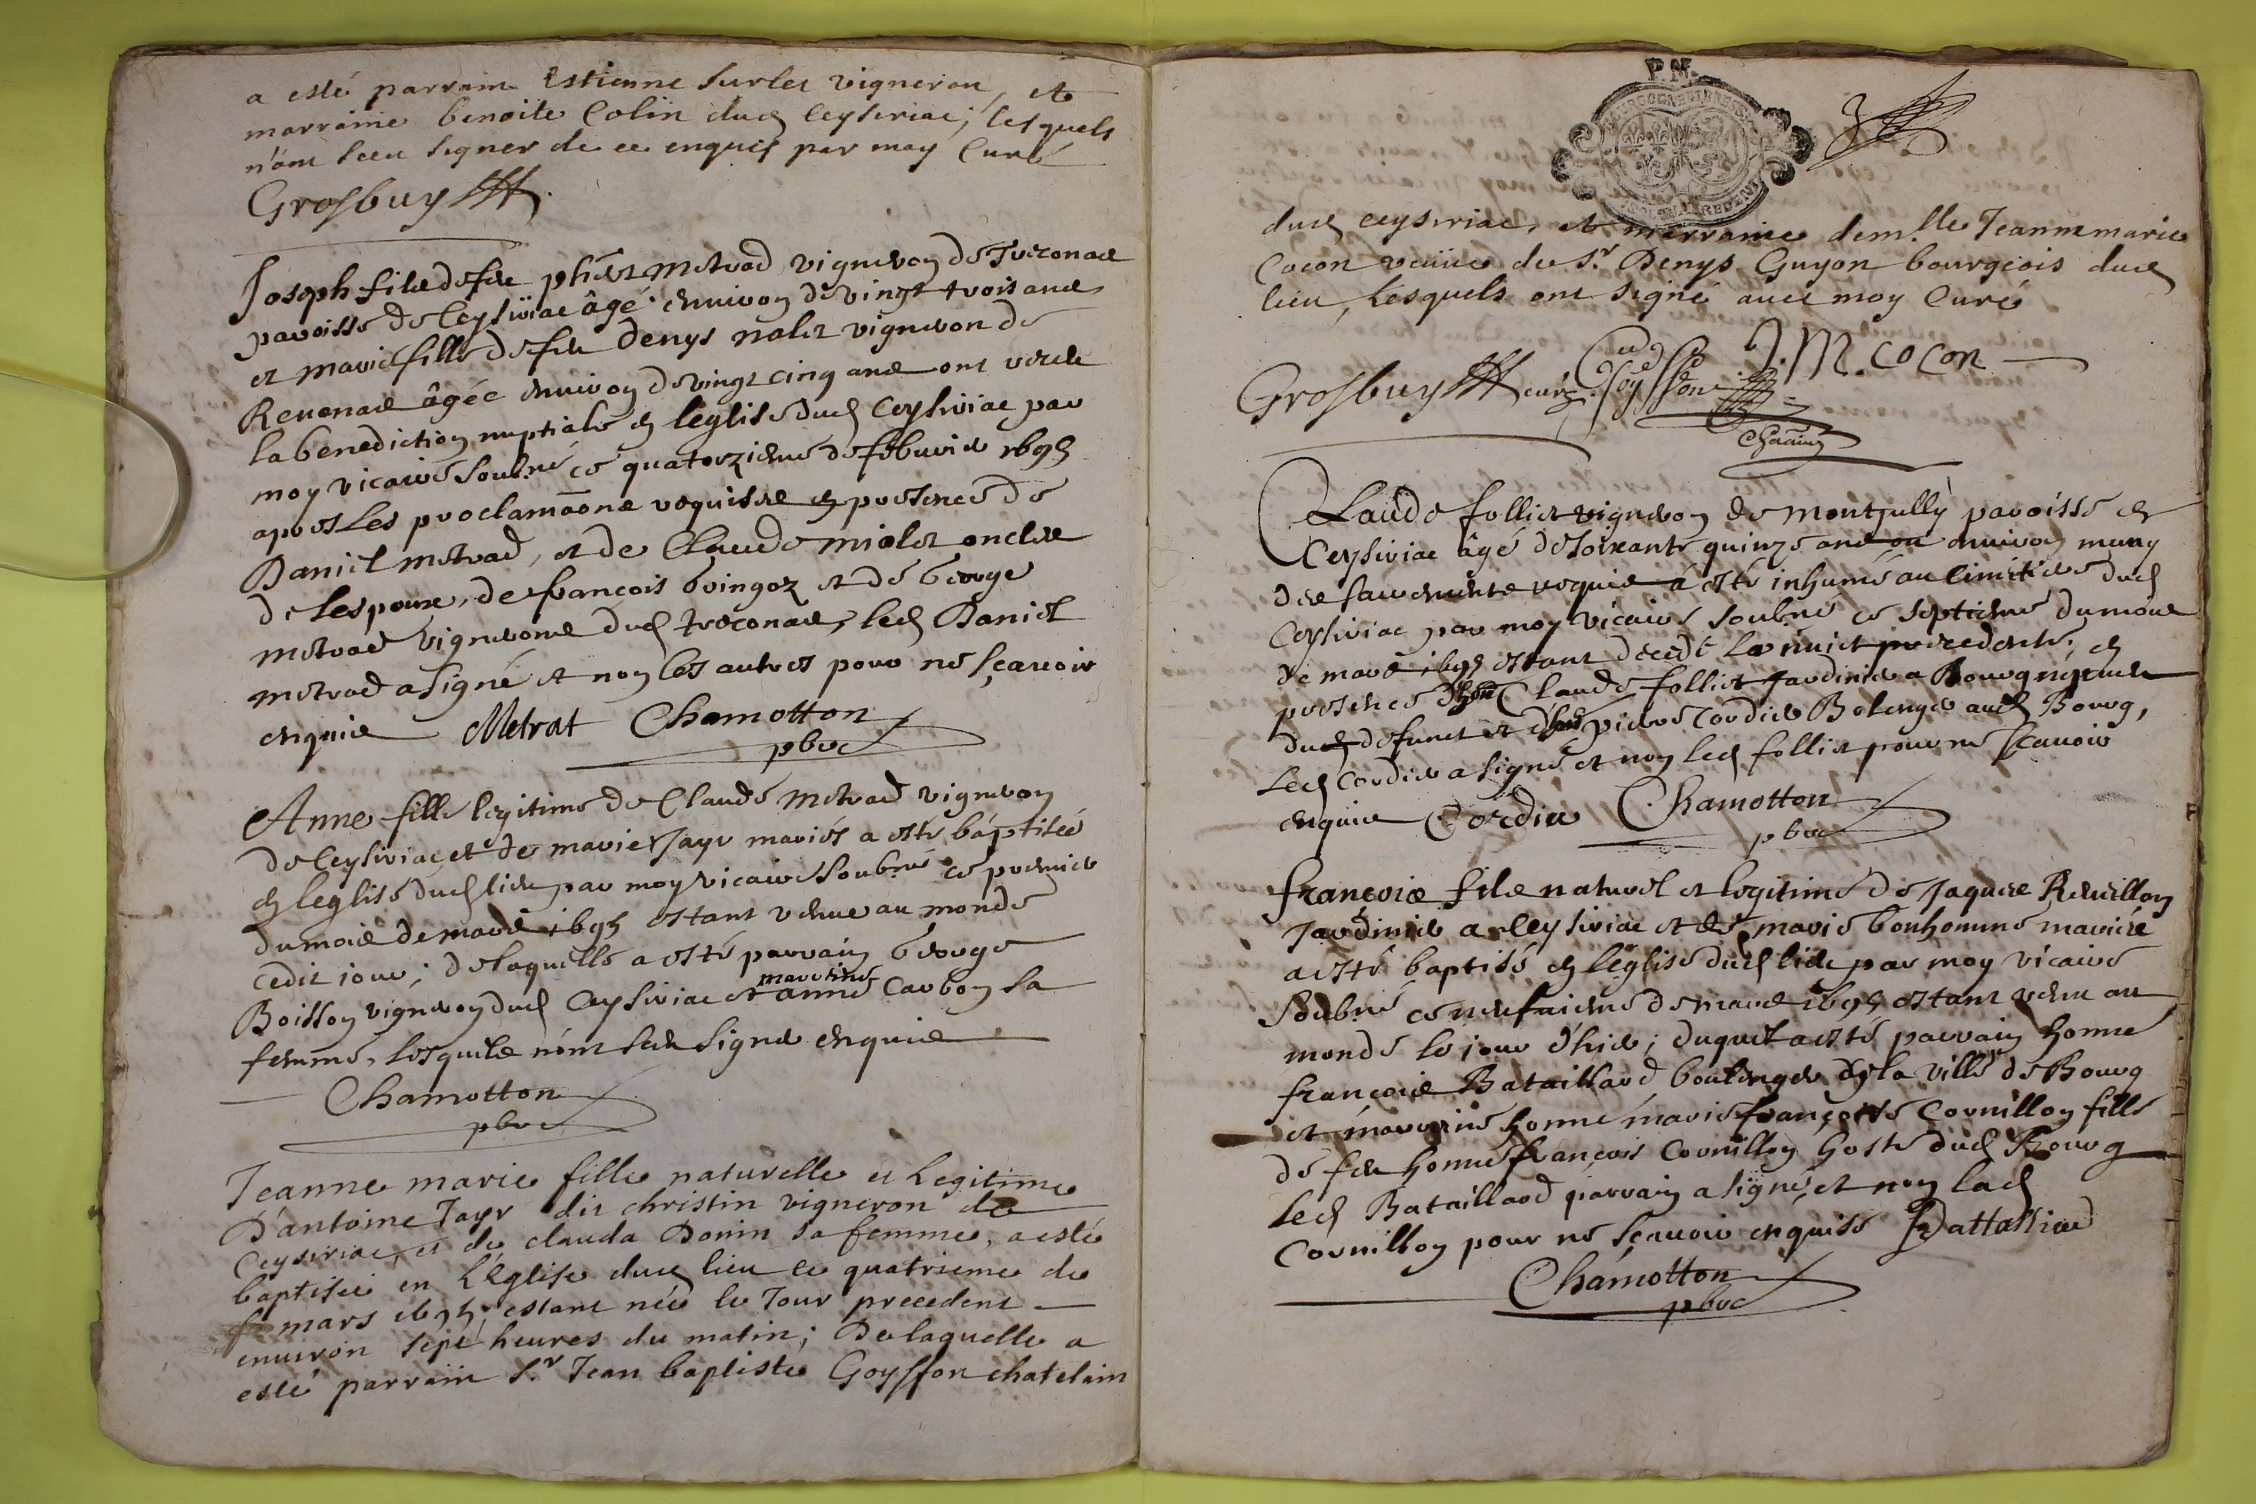 a esté parrain Estienne Surlet vigneron, et
marraine benoite Colin dud Ceyseriac; lesquels
n'ont sceu signer de ce enquis par moy Curé
Grosbuy
Joseph filz de feu vigneron de Treconas
paroisse de Ceyseriac âgé environ de vingt trois ans
et marie fille de feu denys nalet vigneron de
Revonas âgée environ de vingt cinq ans ont receu
la benediction nuptiale en leglise dud Ceyseriac par
moy vicaire soubné ce quatorzieme de febvrier 1695
apres les proclamãone requises en presence de
Daniel metrad, et de Claude miolet oncles
de lespoux, de francois bringoz et de George
metrad vignerons dud treconas, led Daniel
metrad a signé et non les autres pour ne sçavoir
enquis Metrat Chamotton
pbre
Anne fille legitime de Claude metrad vigneron
de Ceyseriac et de marie Jayr mariés a esté baptisée
en leglise dud lieu par moy vicaire soubné ce premier
du mois de mars 1695 estant venue au monde
cedit jour; de laquelle a esté parrain George
Boisson vigneron dud Ceyseriac et marraine anne Carbon sa
femme, lesquels n'ont sceu signer enquis
Chamotton
pbre
Jeanne marie fille naturelle et legitime
D'antoine Jayr dit christin vigneron de
Ceyseriac, et de clauda Donin sa femme, a esté
baptisée en L'Eglise dud lieu ce quatrieme de
mars 1695; estant née le Jour precedent
environ sept heures du matin; De laquelle a
esté parrain S.r Jean baptiste Goysson chatelain
P. M.
dud ceyseriac, et marraine dem.lle Jeanne marie
Cocon veüve de S.r Denys Guyon bourgeois dud
lieu, Lesquels ont signé avec moy Curé
Grosbuy curé. Goysson J. M. cocon
Claude follier vigneron de montjully paroisse de
Ceyseriac âgé de soixante quinze ans ou environ muny
des sacrements requis a esté inhumé au cimetiere dud
Ceyseriac par moy vicaire soubné ce septieme du mois
de mars 1695 estant decedé la nuict precedente, en
presence d'hon Claude follier Jardinier a Bourg nepveu
dud defunct et d'hon pierre Cordier Bolenger aud Bourg,
Led Cordier a signé et non led follier pour ne sçavoir
enquis Cordier Chamotton
pbre
françois filz naturel et legitime de Jaques Revillon
Jardinier a Ceyseriac et de marie bonhomme mariés
a esté baptisé en l'église dud lieu par moy vicaire
Soubné ce neufvieme de mars 1695 estant venu au
monde le jour d'hier; duquel a esté parrain honne
françois Bataillard boulenger de la ville de Bourg
et marraine honne marie françoise Cornillon fille
de feu honne françois Cornillon hoste dud Bourg
Led Bataillard parrain a signé, et non lad
Cornillon pour ne sçavoir enquise Battalliard
Chamotton
pbre